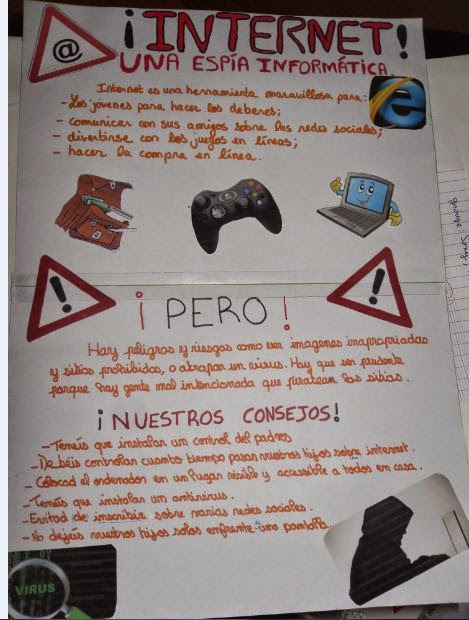 @
¡INTERNET!
UNA ESPÍA INFORMÁTICA
Internet es una herramienta maravillosa para:
- Los jóvenes para hacer los deberes;
- comunicar con sus amigos sobre las redes sociales;
- divertirse con los juegos en líneas;
- hacer la compra en línea.
e
! !
¡ PERO !
Hay peligros y riesgos como ver imagenes inapropriadas
y sitios prohibidos, o atrapar un virus. Hay que ser prudente
porque hay gente mal intencionada que piratean los sitios.
¡NUESTROS CONSEJOS!
- Teneís que instalar un control del padres
- Debéis controlar cuanto tiempo pasan vuestros hijos sobre internet.
- Colocad el ordenador en un lugar visible y accessible a todos en casa.
- Teneís que instalar un antivirus.
- Evitad de inscribir sobre varias redes sociales.
- No dejeís vuestros hijos solos enfrente una pantalla.
VIRUS